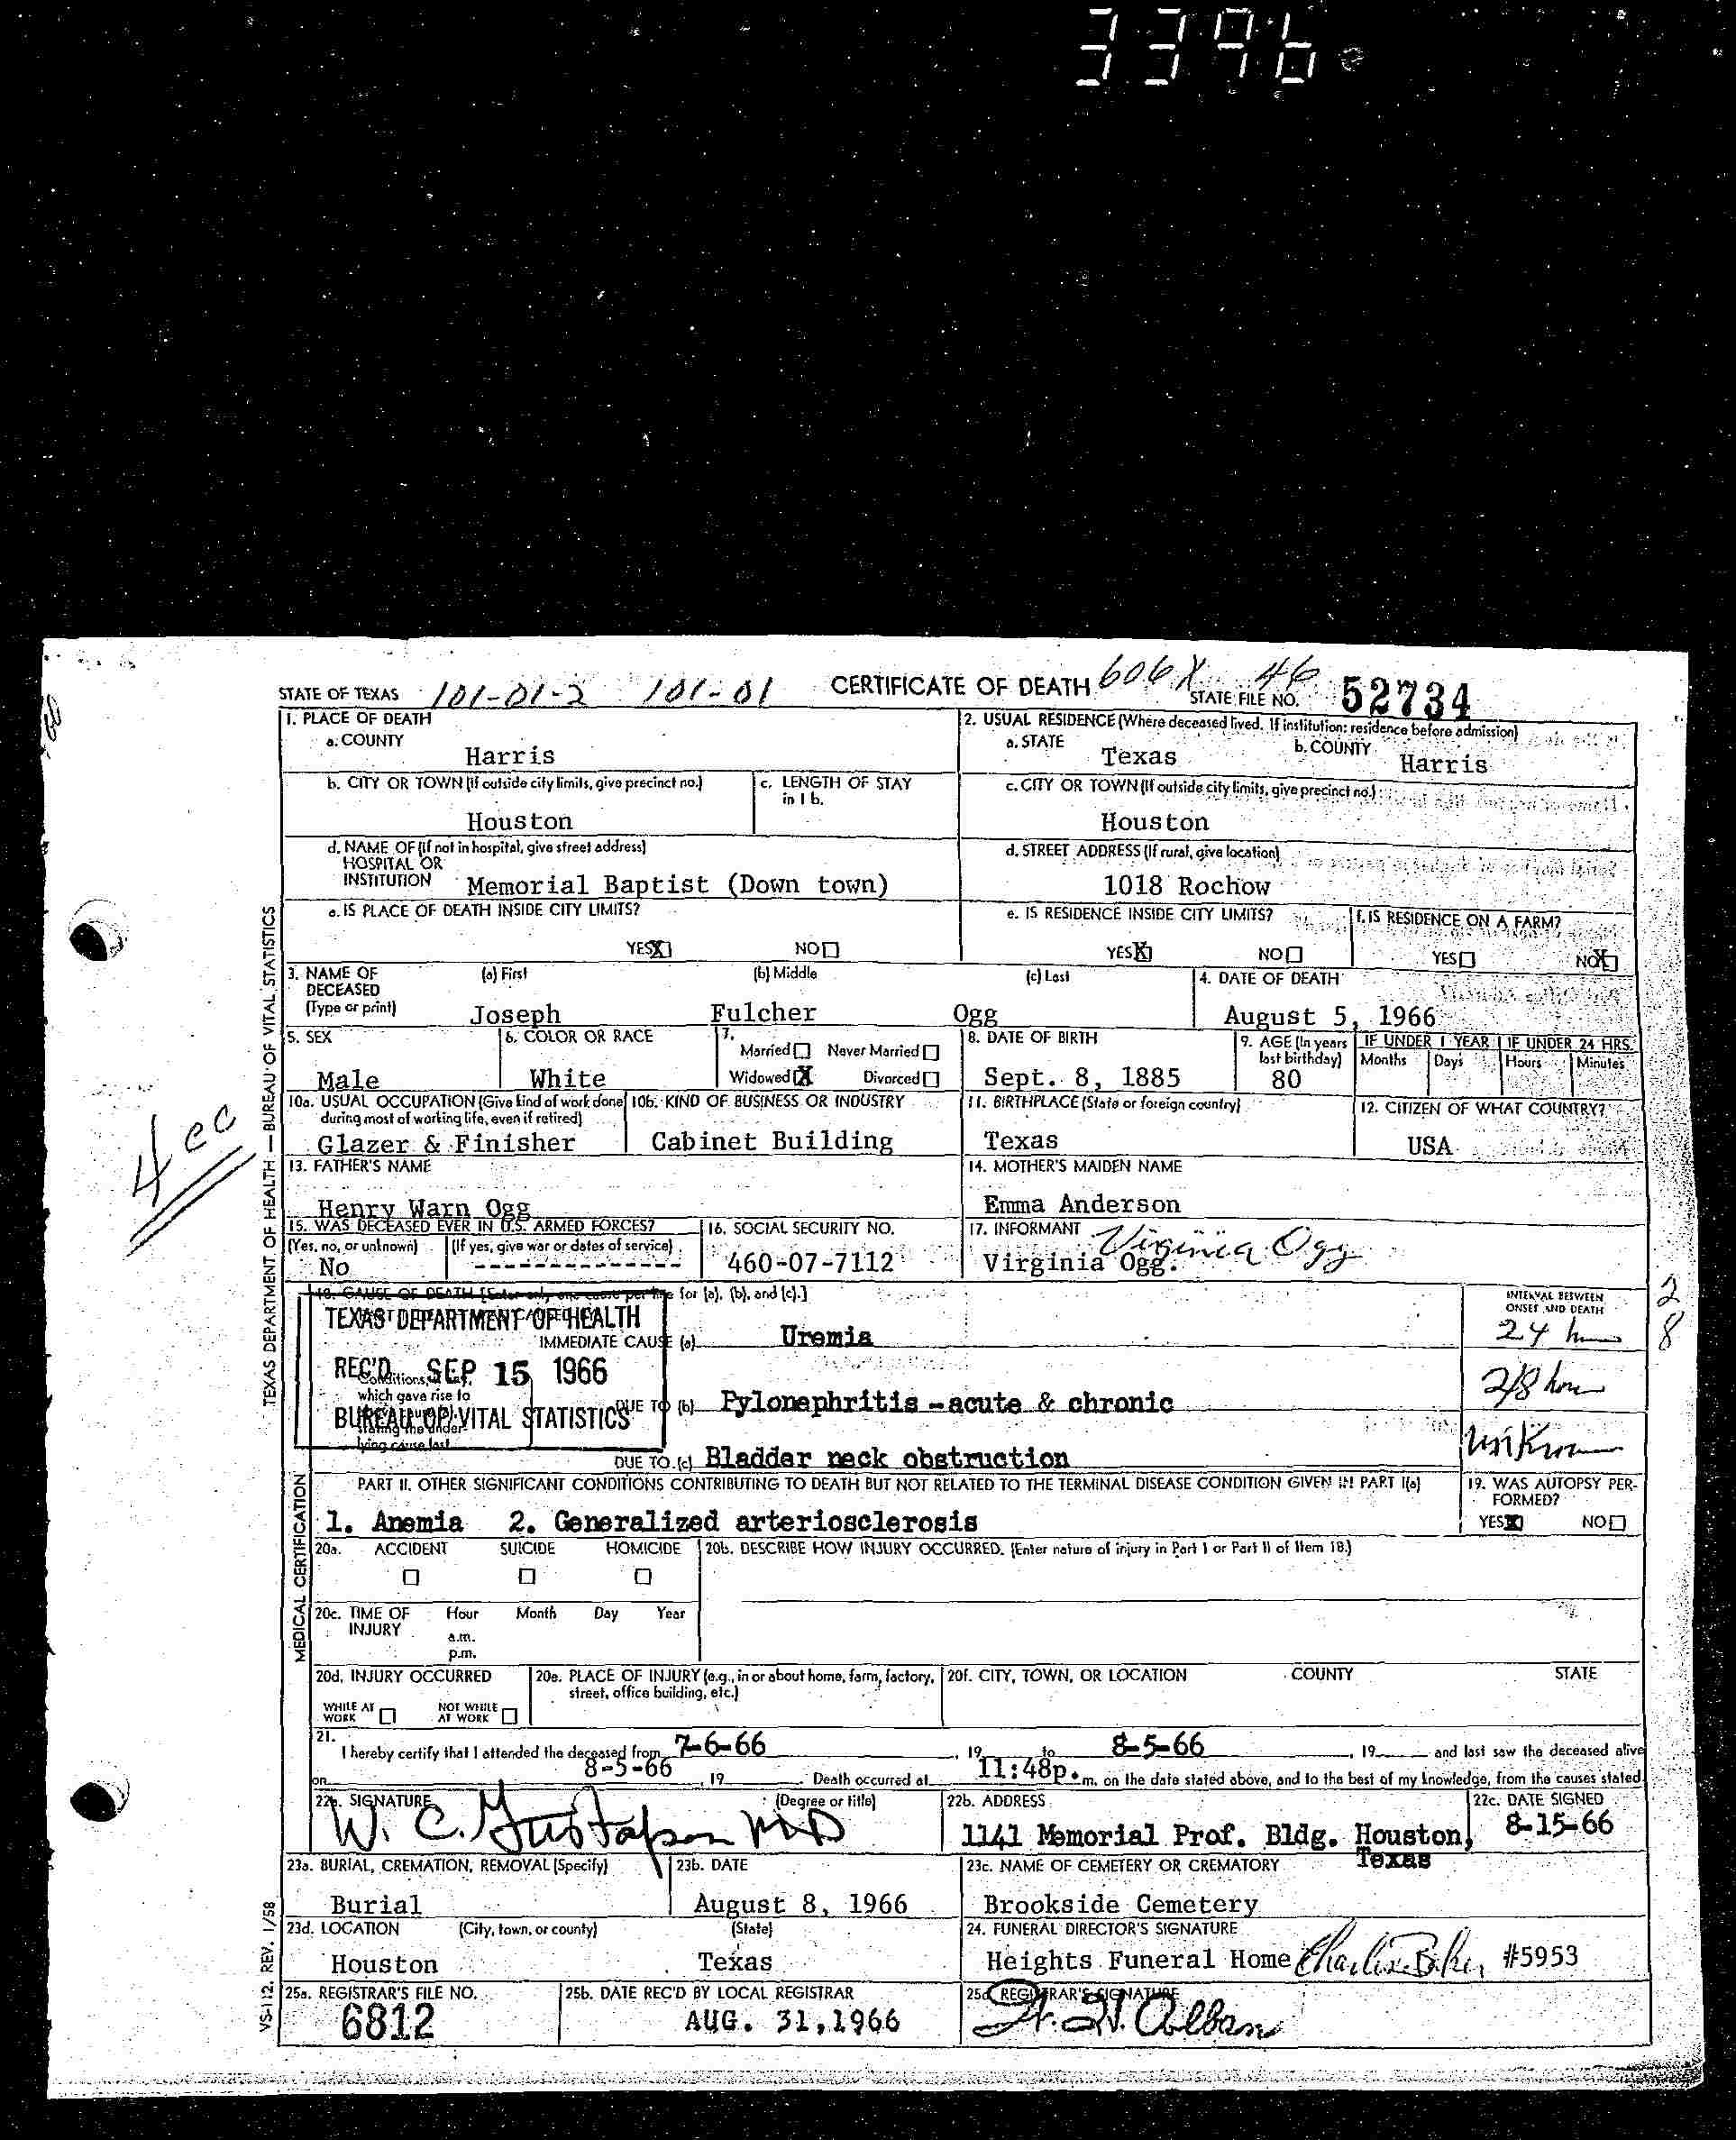 3396
STATE OF TEXAS 101-01-2 101-01 CERTIFICATE OF DEATH 606X 46 STATE FILE NO. 52734
1. PLACE OF DEATH
a. COUNTY
Harris
2. USUAL RESIDENCE (Where deceased lived. If institution: residence before admission)
a. STATE b. COUNTY
Texas Harris
b. CITY OR TOWN (If outside city limits, give precinct no.) c. LENGTH OF STAY in 1 b.
Houston
c. CITY OR TOWN (If outside city limits, give precinct no.)
Houston
d. NAME OF (If not in hospital, give street address)
HOSPITAL OR
INSTITUTION Memorial Baptist (Down town)
d. STREET ADDRESS (If rural, give location)
1018 Rochow
e. IS PLACE OF DEATH INSIDE CITY LIMITS?
YES X NO
e. IS RESIDENCE INSIDE CITY LIMITS? f. IS RESIDENCE ON A FARM?
YES X NO YES NO X
3. NAME OF DECEASED (Type or print) (a) First (b) Middle (c) Last 4. DATE OF DEATH
Joseph Fulcher Ogg August 5, 1966
5. SEX 6. COLOR OR RACE 7. Married Never Married Widowed X Divorced 8. DATE OF BIRTH 9. AGE (In years last birthday) IF UNDER 1 YEAR IF UNDER 24 HRS.
Months Days Hours Minutes
Male White Sept. 8, 1885 80
10a. USUAL OCCUPATION (Give kind of work done during most of working life, even if retired) 10b. KIND OF BUSINESS OR INDUSTRY 11. BIRTHPLACE (State or foreign country) 12. CITIZEN OF WHAT COUNTRY?
Glazer & Finisher Cabinet Building Texas USA
13. FATHER'S NAME 14. MOTHER'S MAIDEN NAME
Henry Warn Ogg Emma Anderson
15. WAS DECEASED EVER IN U.S. ARMED FORCES? 16. SOCIAL SECURITY NO. 17. INFORMANT Virginia Ogg
(Yes, no, or unknown) (If yes, give war or dates of service)
No -------------- 460-07-7112 Virginia Ogg.
18. CAUSE OF DEATH [Enter only one cause per line for (a), (b), and (c).] INTERVAL BETWEEN ONSET AND DEATH
TEXAS DEPARTMENT OF HEALTH
REC'D SEP 15 1966
BUREAU OF VITAL STATISTICS
IMMEDIATE CAUSE (a) Uremia 24
which gave rise to
stating the under-
lying cause last
DUE TO (b) Pylonephritis -acute & chronic
DUE TO (c) Bladder neck obstruction
2
8
PART II. OTHER SIGNIFICANT CONDITIONS CONTRIBUTING TO DEATH BUT NOT RELATED TO THE TERMINAL DISEASE CONDITION GIVEN IN PART I(a) 19. WAS AUTOPSY PER-FORMED?
1. Anemia 2. Generalized arteriosclerosis YES X NO
20a. ACCIDENT SUICIDE HOMICIDE 20b. DESCRIBE HOW INJURY OCCURRED. (Enter nature of injury in Part I or Part II of Item 18.)
20c. TIME OF INJURY Hour Month Day Year
a.m.
p.m.
20d. INJURY OCCURRED 20e. PLACE OF INJURY (e.g., in or about home, farm, factory, street, office building, etc.) 20f. CITY, TOWN, OR LOCATION COUNTY STATE
WHILE AT WORK NOT WHILE AT WORK
21.
I hereby certify that I attended the deceased from 7-6-66, 19 to 8-5-66, 19 and last saw the deceased alive
on 8-5-66, 19 Death occurred at 11:48p.m. on the date stated above, and to the best of my knowledge, from the causes stated.
22a. SIGNATURE (Degree or title) 22b. ADDRESS 22c. DATE SIGNED
W. C. Gustafson MD 1141 Memorial Prof. Bldg. Houston, Texas 8-15-66
23a. BURIAL, CREMATION, REMOVAL (Specify) 23b. DATE 23c. NAME OF CEMETERY OR CREMATORY
Burial August 8, 1966 Brookside Cemetery
23d. LOCATION (City, town, or county) (State) 24. FUNERAL DIRECTOR'S SIGNATURE
Houston Texas Heights Funeral Home Charlie Baker #5953
25a. REGISTRAR'S FILE NO. 25b. DATE REC'D BY LOCAL REGISTRAR 25c. REGISTRAR'S SIGNATURE
6812 AUG. 31,1966
TEXAS DEPARTMENT OF HEALTH — BUREAU OF VITAL STATISTICS
MEDICAL CERTIFICATION
VS-112. REV. 1/58